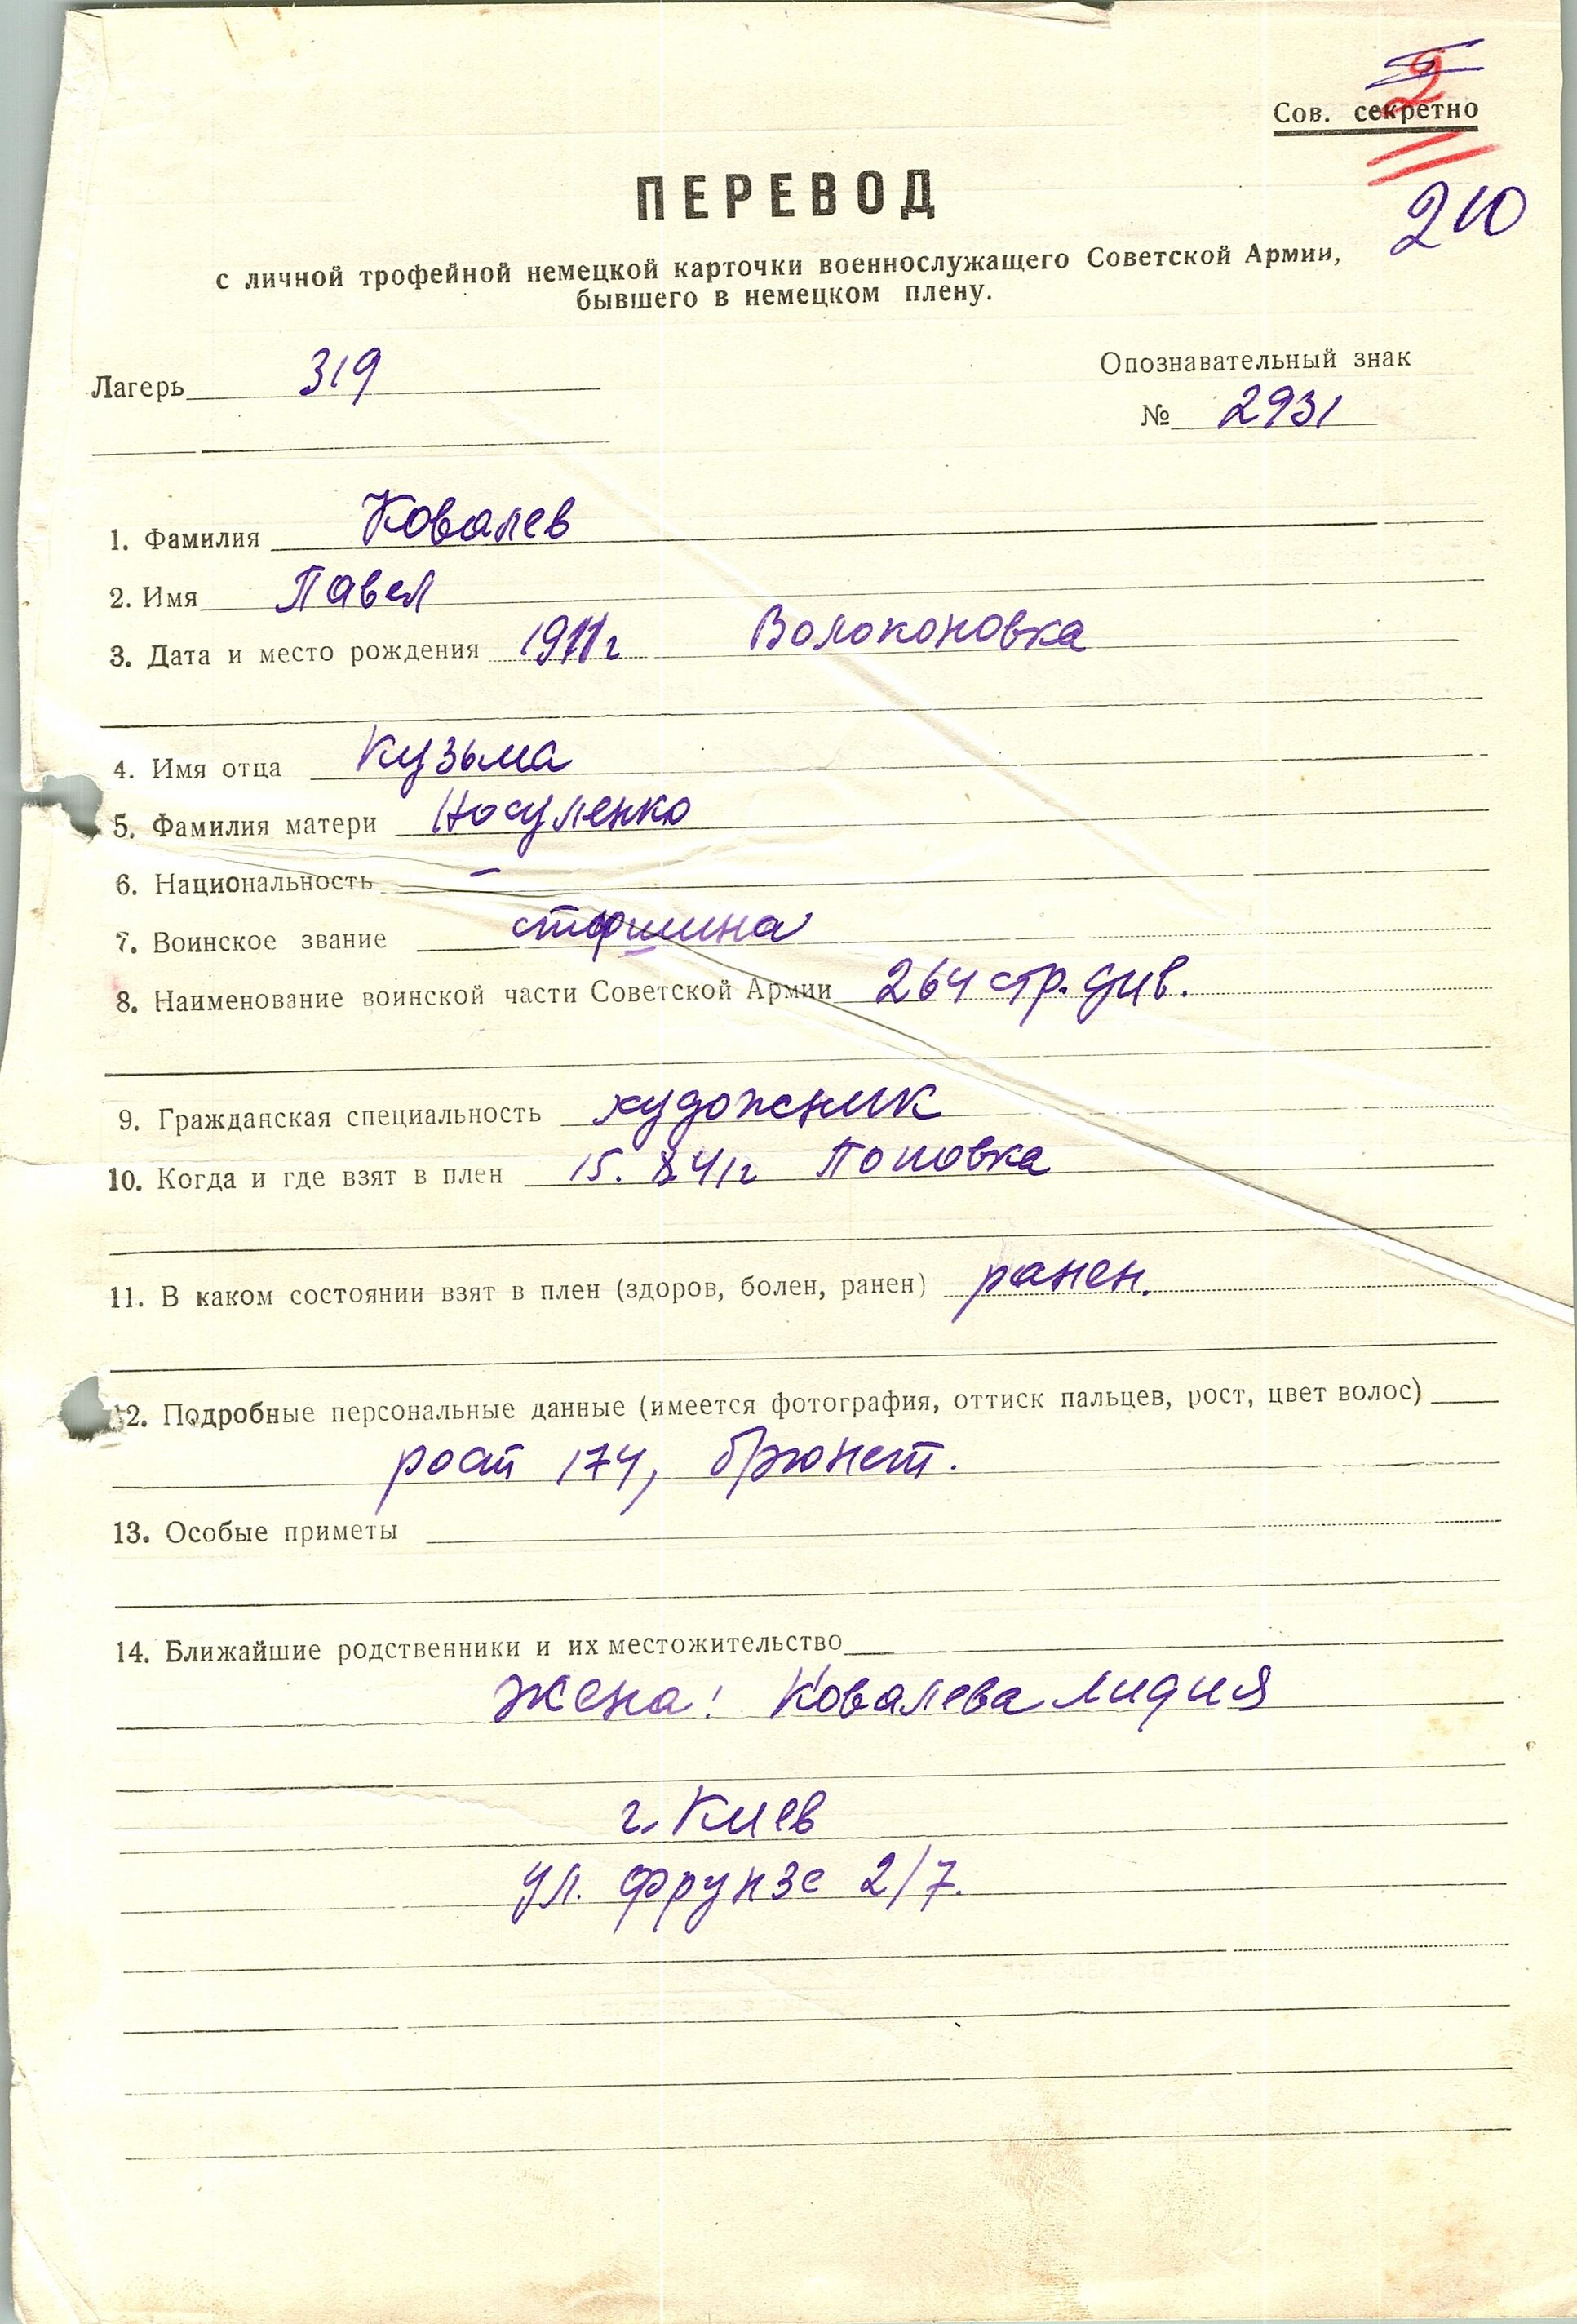 2
Сов. секретно
210
ПЕРЕВОД
с личной трофейной немецкой карточки военнослужащего Советской Армии,
бывшего в немецком плену.
Лагерь 319
Опознавательный знак
№ 2931
1. Фамилия Ковалев
2. Имя Павел
3. Дата и место рождения 1911г Волоконовка
4. Имя отца Кузьма
5. Фамилия матери Носуленко
6. Национальность –
7. Воинское звание старшина
8. Наименование воинской части Советской Армии 264 стр. див.
9. Гражданская специальность художник
10. Когда и где взят в плен 15. 8 41г Поповка
11. В каком состоянии взят в плен (здоров, болен, ранен) ранен.
12. Подробные персональные данные (имеется фотография, оттиск пальцев, рост, цвет волос)
рост 174, брюнет.
13. Особые приметы
14. Ближайшие родственники и их местожительство
Жена: Ковалева Лидия
г. Киев
ул. Фрунзе 2/7.